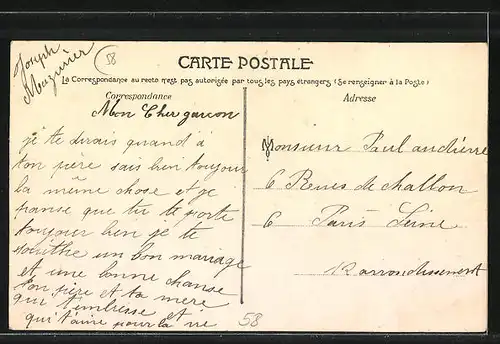 Joseph
Mazurier
58
CARTE POSTALE
La Correspondance au recto n'est pas autorisée par tous les pays étrangers (Se renseigner à la Poste)
Correspondance
Mon Cher garcon
je te dirais quand á
ton père sais bien toujour
la même chose et je
panse que tu te porte
toujour bien je te
souithe un bon mariage
et une bonne chanse
ton père et ta mere
qui t'embresse et
qui t'aime pour la vie
58
Adresse
Monsieur Paul andièrre
6 Renes de challon
6 Paris Seine
12 arrondissement